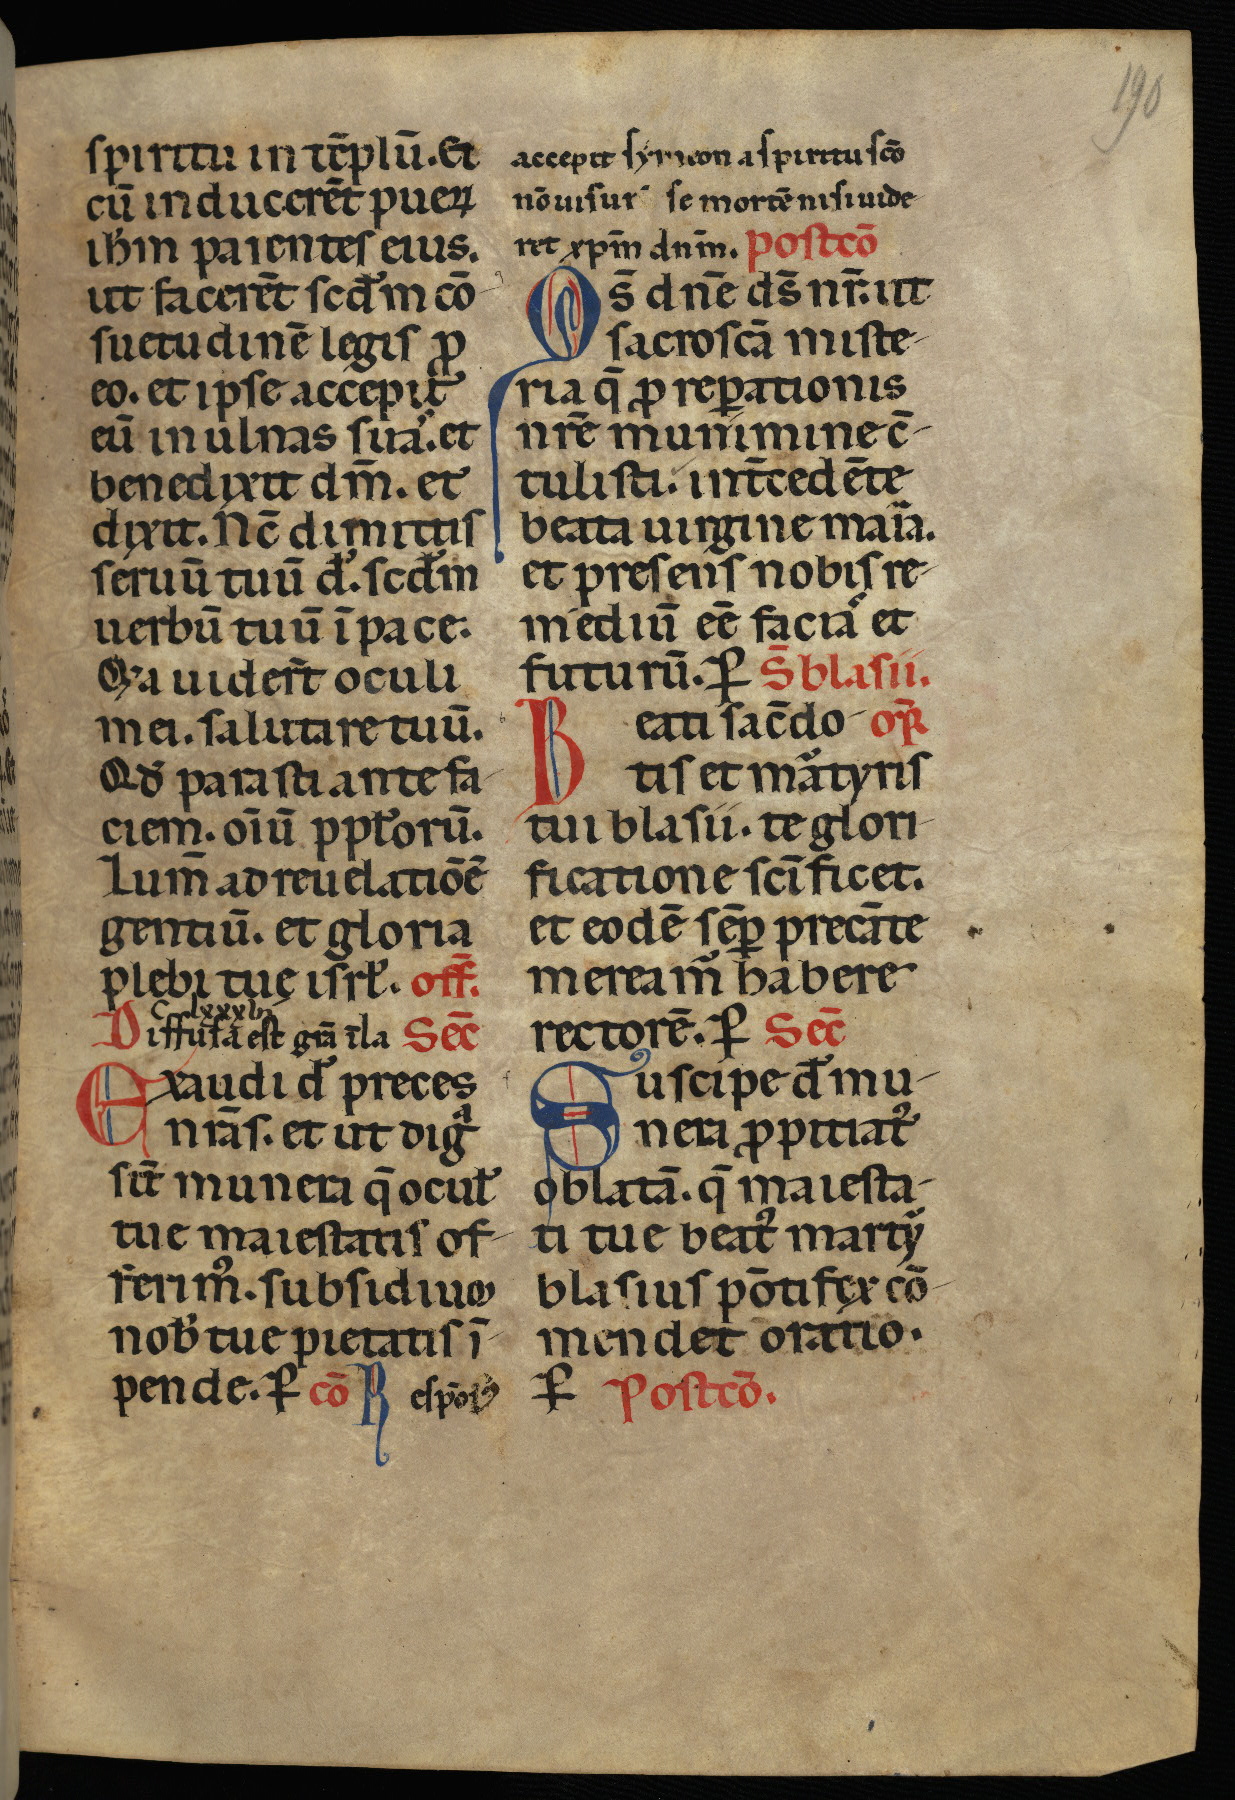 190
spiritu in te̅plu̅. Et
cu̅ inducere̅t pueꝝ
ih̅m parentes eius.
ut facere̅t scd̅m co̅
suetudine̅ legis ꝓ
eo. et ipse accepit
eu̅ in ulnas suas. et
benedixit dm̅. et
dixit. Nc̅ dimittis
seruu̅ tuu̅ d̅. scd̅m
uerbu̅ tuu̅ i̅ pace.
Qͥa uider̅t oculi
mei. salutare tuu̅.
Qd̅ parasti ante fa-
ciem. oi̅u̅ ppl̅oru̅.
Lum̅ ad reuelatio̅e̅
gentiu̅. et gloria
plebi tuę isrl̅. off̅.
C. lxxxiii
Diffusa est gr̅a i̅ la Sec̅
Exaudi d̅ preces
nr̅as. et ut digᷓ
si̅t munera q̅ ocul̅
tue maiestatis of-
ferim᷒. subsidium
nob̅ tue pietatis i̅-
pende. ꝑ co̅ Respo̅
accepit symeon a spiritu sc̅o
no̅ uisur᷒ se morte̅ nisi uide
ret xp̅m dn̅m. postco̅
Qs̅ dn̅e ds̅ nr̅. ut
sacrosc̅a miste-
ria q̅ ꝓ reꝑationis
nr̅e munimine c̅-
tulisti. int̅cede̅te
beata uirgine maria.
et presens nobis re-
mediu̅ ee̅ facias et
futuru̅. ꝑ S̅ blasii.
Beati sac̅do- or̅
tis et mar̅tyris
tui blasii. te glori-
ficatione sci̅ficet.
et eode̅ se̅ꝑ preca̅te
meream᷒ habere
rectore̅. ꝑ Sec̅
Suscipe d̅ mu-
nera ꝓpitiat᷒
oblata̅. q̅ maiesta-
ti tue beat᷒ marty
blasius po̅tifex co̅-
mendet oratio.
ꝑ Postco̅.